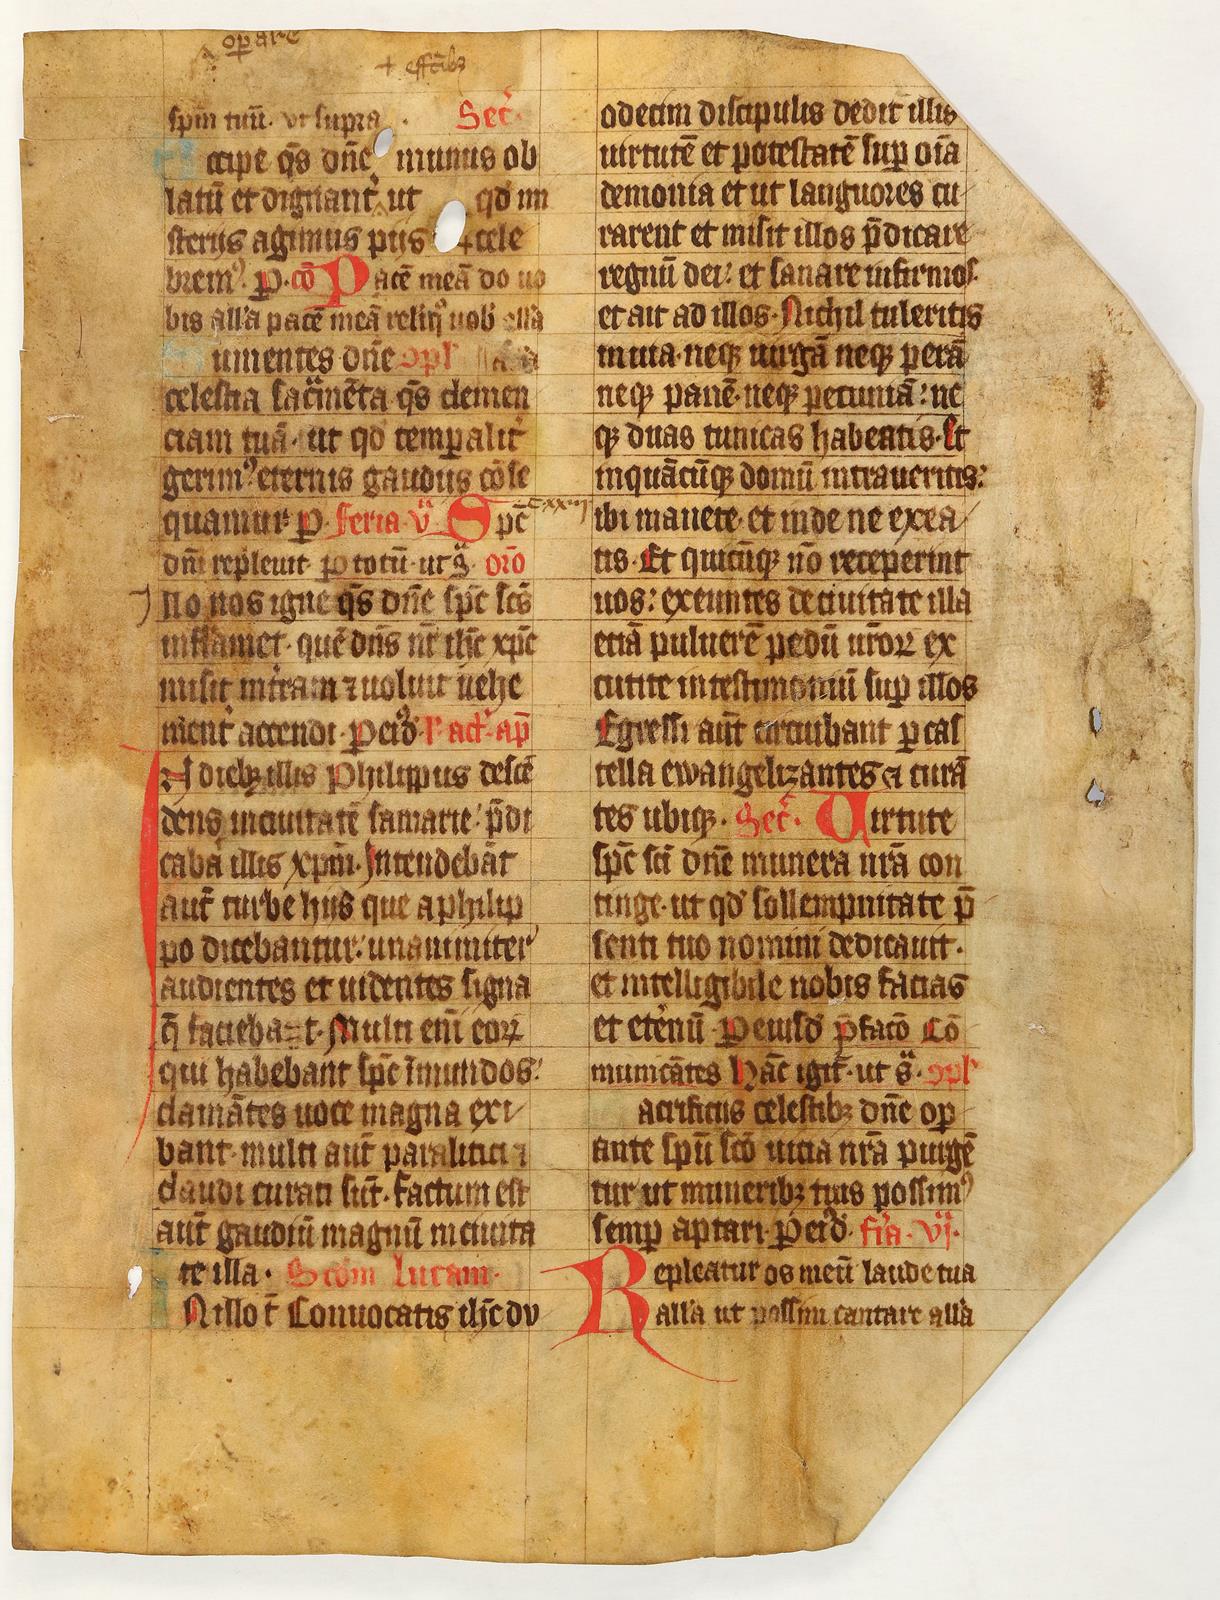 opare
+ effcibꝫ
spm tuū· vt supra · Secͬ·
ccipe q̄s dn̄e munus ob
latū et dignant̉ ut qd̓ mi
sterijs agimus pijs + cele
brem᷒· P·cō Pacē meā do uo
bis all̓a pacē meā relinq̊ uob̓ all̓a
umentes dn̄e opl̓
celestia sac̃mēta q̄s clemen
ciam tuā· ut qd̓ temꝑalit̓
gerim᷒ eternis gaudiis cōse
quamur ꝑ· feria·v̈· Spc̄
cxxiij
dn̄i repleuit· ꝑ totū· ut s̈· orō
llo nos igne q̄s dn̄e spc̄ scs̄
inflamet· quē dn̄s nr̄ ihc̄ xpc̄
misit in tr̃am ⁊ uoluit uehe
ment̓ accendi· ꝑ eiͩ· l̓· act̓· ap̄
In diebꝫ illis Philippus descē
dens in ciuitatē samarie· p̄di
caba illis xpm̄· Intendebāt
aut̄ turbe hijs que a philip
po dicebantur· unanimiter
audientes et uidentes signa
q̄ faciebat· Multi eni̅ eoꝝ
qui habebant spc̄ īmundos·
clamātes uoce magna exi
bant· multi aut̄ paralitici ⁊
claudi curati sūt· factum est
aut̄ gaudiū magnū in ciuita
te illa· Scdm lucam·
In illo t̄ Conuocatis ihc̄ du
odecim discipulis dedit illis
uirtutē et potestatē suꝑ oīa
demonia et ut languores cu
rarent et misit illos p̄dicare
regnū dei· et sanare infirmos·
et ait ad illos· Nichil tuleritis
in uia· neqꝫ uirgā neqꝫ perā
neqꝫ panē· neqꝫ pecuniā: ne
qꝫ duas tunicas habeatis· Et
in quācūqꝫ domū intraueritis:
ibi manete· et inde ne exea
tis· Et quicūqꝫ nō receperint
uos: exeuntes de ciuitate illa
eciā puluerē pedū ur̄oꝝ ex
cutite in testimoniū suꝑ illos
Egressi aut̄ circuibant ꝑ cas
tella ewangelizantes ⁊ curā
tes ubiqꝫ· Secͬ· Uirtute
spc̄ sci̅ dn̄e munera nr̄a con
tinge· ut qd̓ sollempnitate p̄
senti tuo nomini dedicauit·
et intelligibile nobis facias
et eternū· ꝑ eiusd̓ p̄facō Cō
municātes Hāc igit̓· ut s̈· opl̓
acrificiis celestibꝫ dn̄e oꝑ
ante spū scō uicia nr̄a purgē
tur ut muneribꝫ tuis possim᷒
semꝑ aptari· ꝑ eiͩ· fr̓a· vj̈·
Repleatur os meū laude tua
all̓a ut possim cantare all̓a